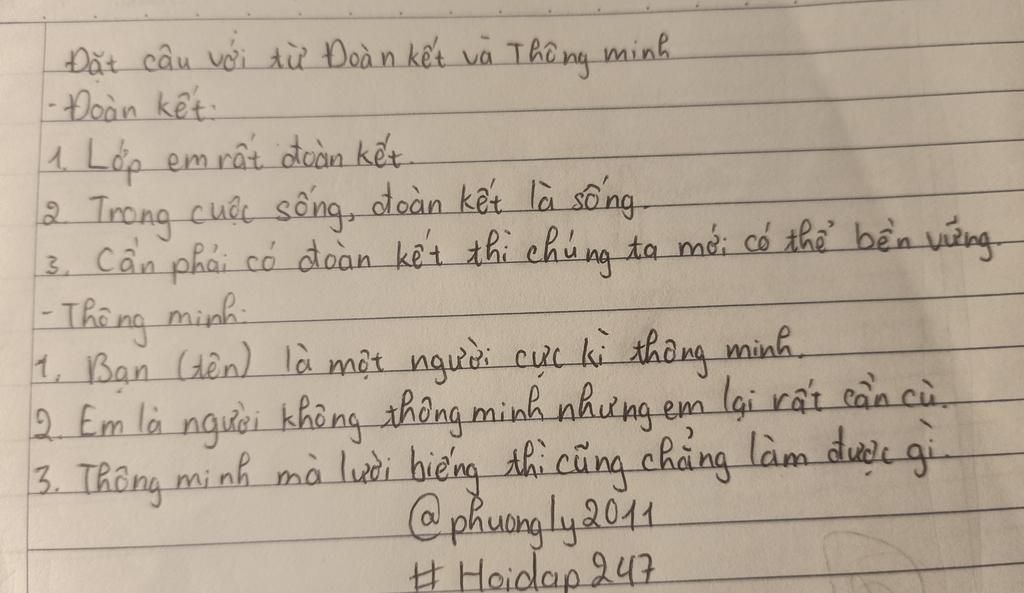 Đặt câu với từ Đoàn kết và Thông minh
- Đoàn kết:
1. Lớp em rất đoàn kết.
2 Trong cuộc sống, đoàn kết là sống.
3. Cần phải có đoàn kết thì chúng ta mới có thể bền vững.
- Thông minh:
1. Bạn (tên) là một người cực kì thông minh.
2. Em là người không thông minh nhưng em lại rất cần cù.
3. Thông minh mà lười biếng thì cũng chẳng làm được gì.
@phuongly2011
# Hoidap247